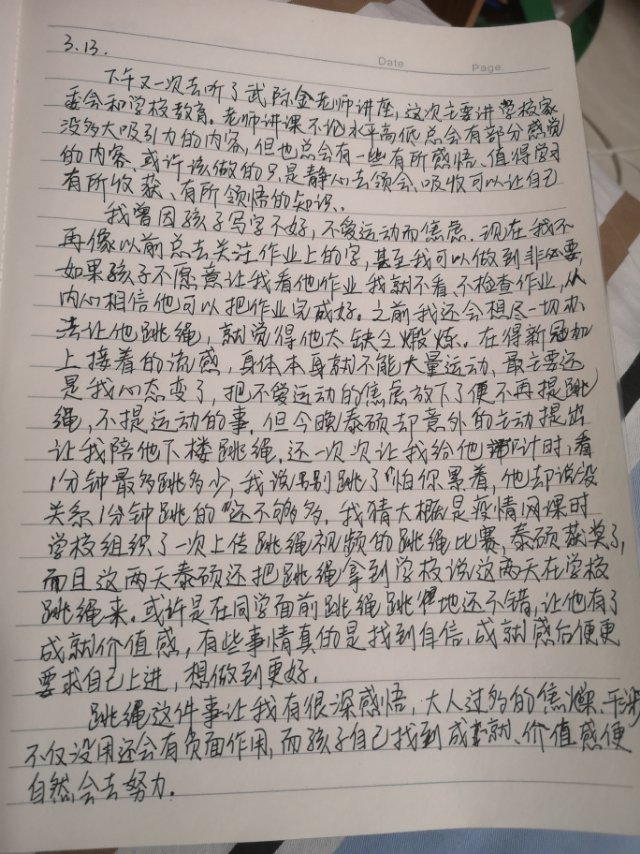 Date Page
3.13.
下午又一次去听了武际金老师讲座,这次主要讲学校家
委会和学校教育。老师讲课不论水平高低总会有部分感觉
没多大吸引力的内容,但也总会有一些有所感悟、值得学习
的内容、或许该做的只是静心去领会、吸收可以让自己
有所收获、有所领悟的知识、
我曾因孩子写字不好,不爱运动而焦虑.现在我不
再像以前总去关注作业上的字,甚至我可以做到非必要,
如果孩子不愿意让我看他作业我就不看、不检查作业,从
内心相信他可以把作业完成好。之前我还会想尽一切办
法让他跳绳,就觉得他太缺乏煅炼。在得新冠加
上接着的流感,身体本身就不能大量运动、最主要还
是我心态变了,把不爱运动的焦虑放下了便不再提跳
绳,不提运动的事.但今晚泰硕却意外的主动提出
让我陪他下楼跳绳.还一次次让我给他计时,看
1分钟最多跳多少,我说别跳了怕你累着,他却说没
关系1分钟跳的还不够多.我猜大概是疫情网课时
学校组织了一次上传跳绳视频的跳绳比赛,泰硕获奖了,
而且这两天泰硕还把跳绳拿到学校说这两天在学校
跳绳来.或许是在同学面前跳绳跳地还不错,让他有了
成就价值感,有些事情真的是找到自信、成就感后便更
要求自己上进,想做到更好.
跳绳这件事让我有很深感悟,大人过多的焦燥、干涉
不仅没用还会有负面作用,而孩子自己找到成就、价值感便
自然会去努力.